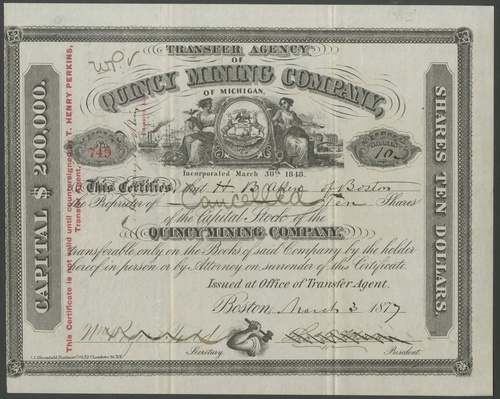 TRANSFER AGENCY
OF
QUINCY MINING COMPANY,
OF MICHIGAN.
CAPITAL $200,000.
SHARES TEN DOLLARS.
This Certificate is not valid until countersigned by T. HENRY PERKINS,
Transfer Agent,
749
SHARES
10
Incorporated March 30th 1848.
This Certifies, that H B Aken of Boston
the Proprietor of Ten Shares
Cancelled
of the Capital Stock of the
QUINCY MINING COMPANY.
transferable, only on the Books of said Company by the holder
thereof in person or by Attorney on surrender of this Certificate.
Issued at Office of Transfer Agent.
Boston, March 3 1877
Secretary.
President.